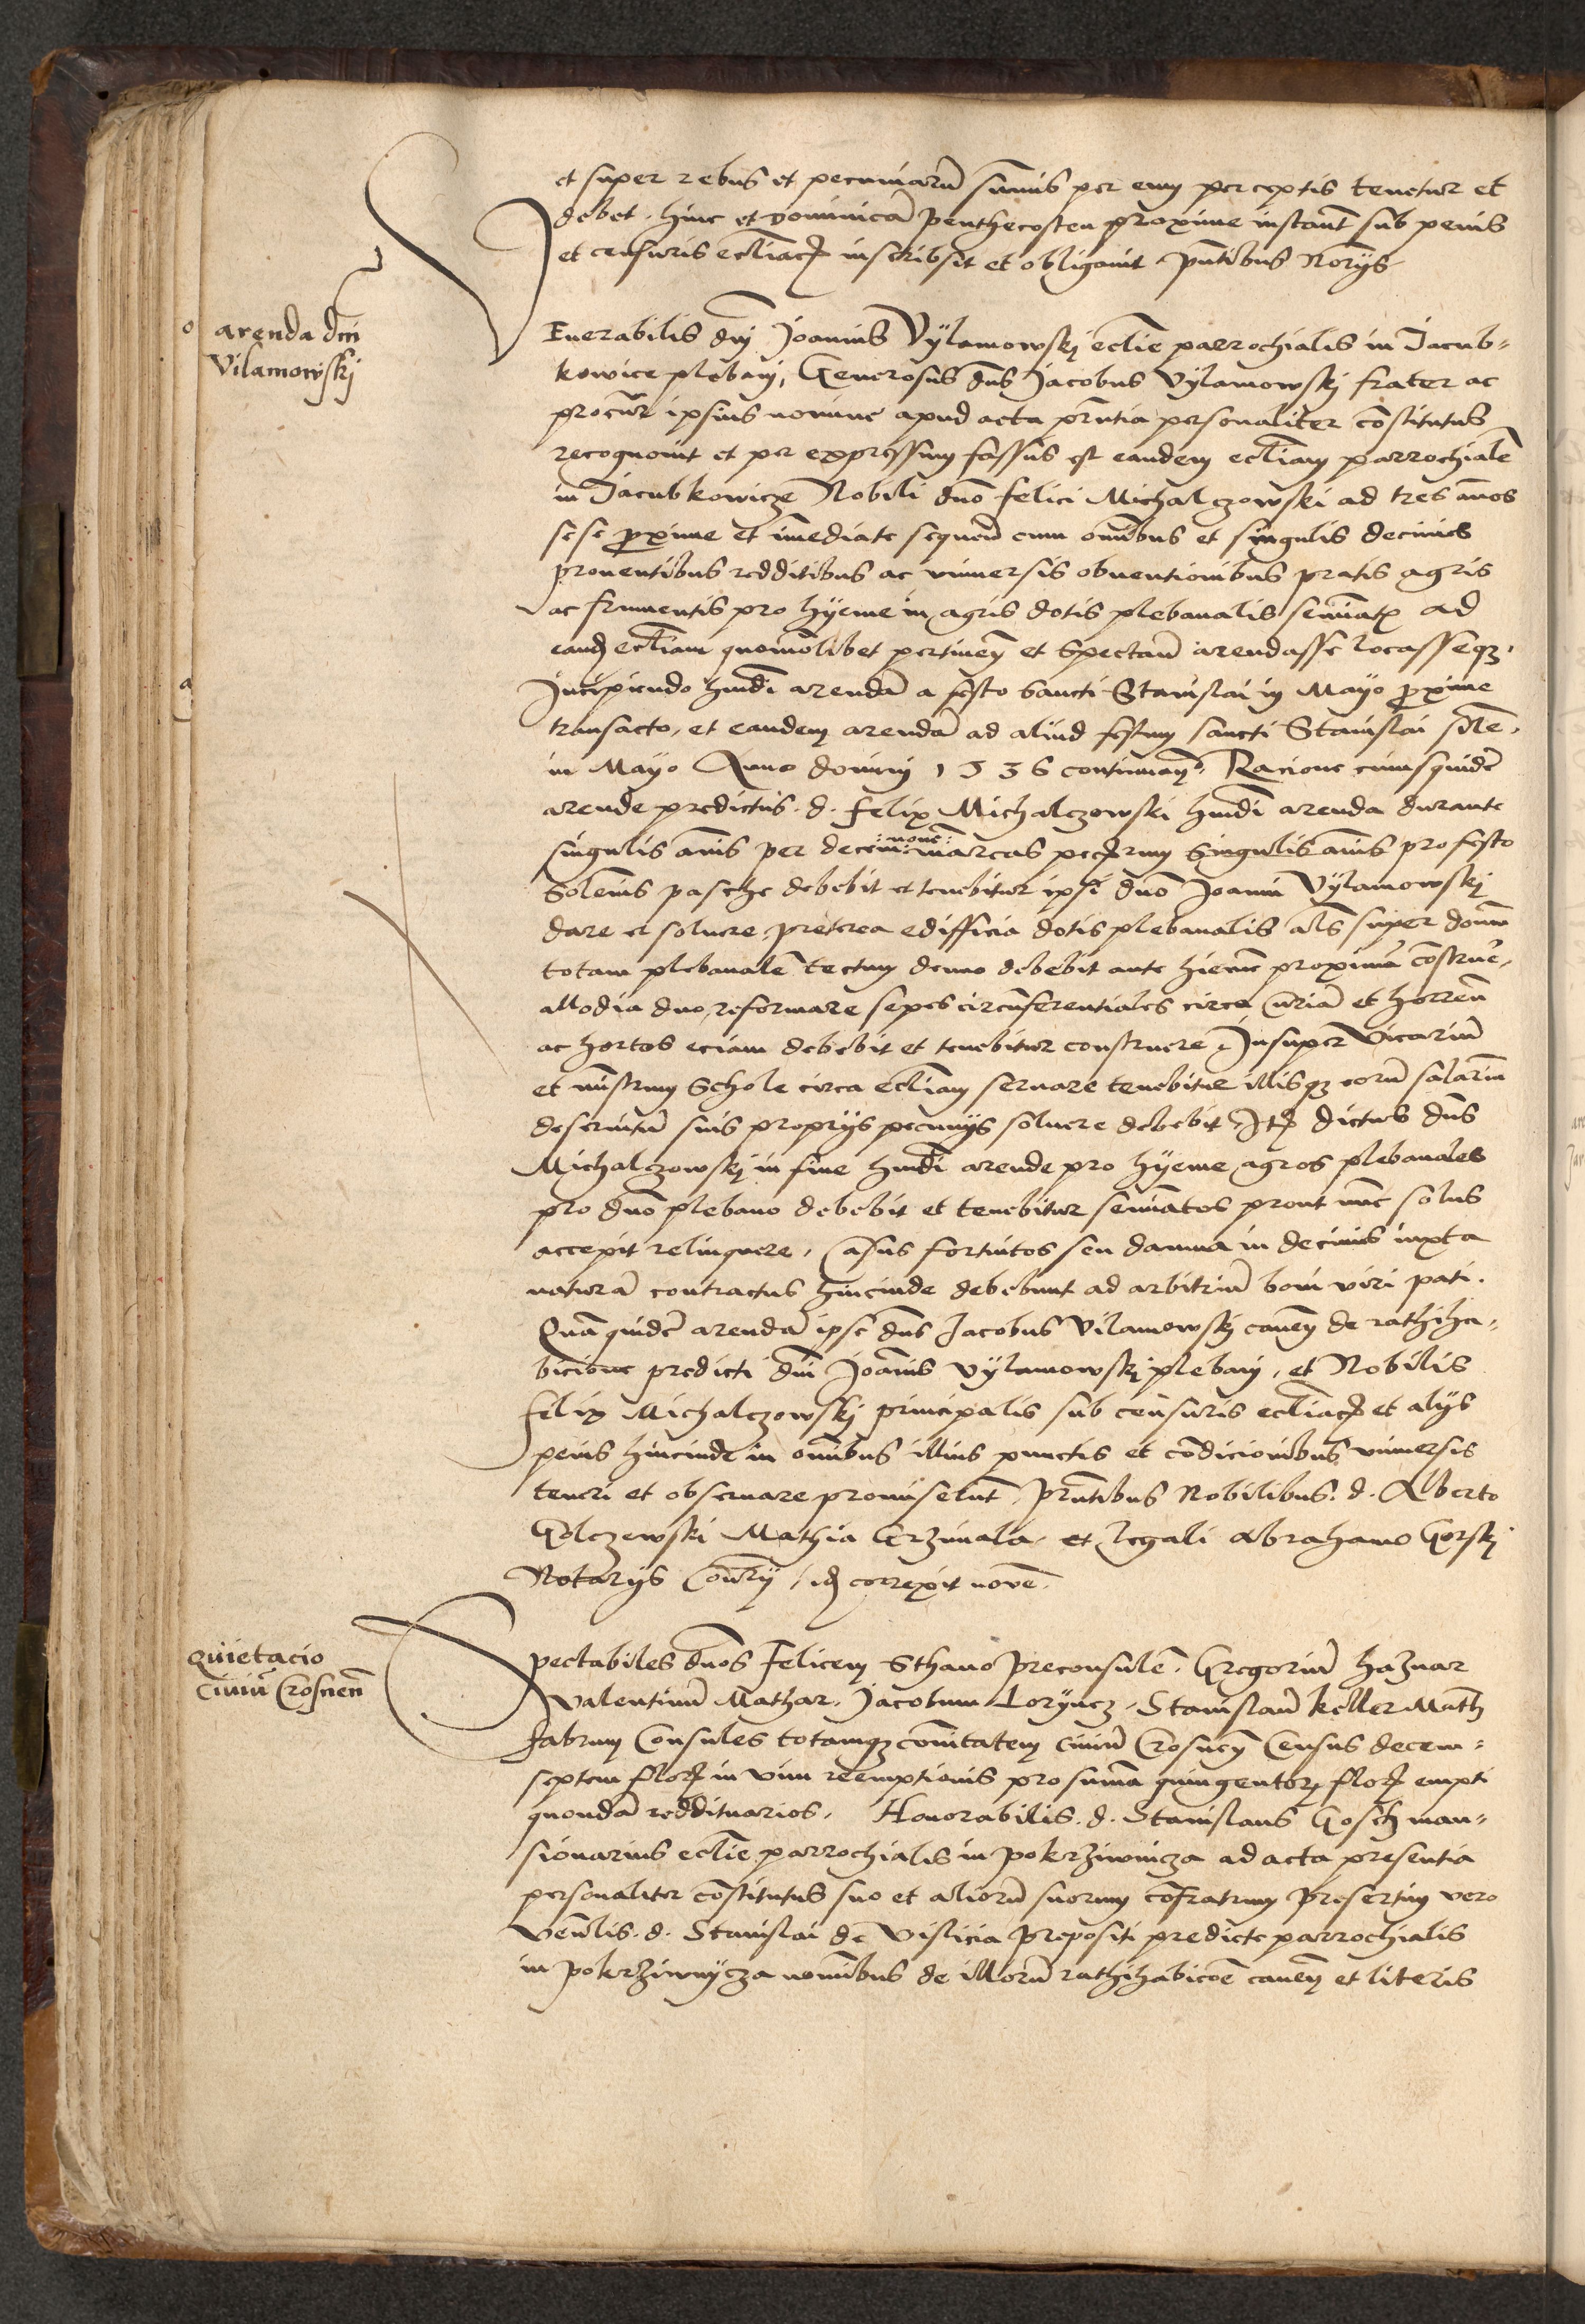 et super rebus et pecuniarũ sumis per eum perceptis tenetur et
debet. hinc et dominicã penthecosten proxime instant̃ sub penis
et censuris eccl̃iac̃ inscribsit et obligauit pñtibus Norys
arenda dni
Vilamowskj
VEnerabilis dnj Joannis Vÿlamowskj eccl̃ie parrochialis in Jacub-
kowice plebanj, Generosus dñs Jacobus Vylamowskj frater ac
procur̃ ipsius nomine apud acta pñtia personaliter cõstitutus
recognouit et per expressum fassus est eandem eccl̃iam parrochialẽ
in Jacubkowicze Nobili dño felici Michalczowski ad tres ãnos
sese proxime et ĩmediate sequeñ cum om̃ibus et singulis decimis
prouentibus redditibus ac vniuersis obuentionibus pratis agris
ac frumentis pro hÿeme in agris dotis plebanalis semiat̃ ad
eand̃ eccl̃iam quomõlibet pertineñ et Spectañ arendasse locasseqꝫ.
Incipiendo hm̃di arendã a festo Sancti Stanislai in Mayo ꝓxime
transacto, et eandem arendã ad aliud festum sancti Stanislai sil̃e.
in Mayo Anno dominj 1536 continuañ. Racione cuiusquidẽ
arende predictus. d. felix Michalczowski hm̃di arenda durante
singulis ãnis per decem :none: marcas pec̃rum Singulis ãnis pro festo
Solẽnis pasche debebit et tenebitur ipsi dño Joanni Vÿlamowskj
dare et soluere, preterea edifficia dotis plebanalis al̃s super domũ
totam plebanalẽ tectum denuo debebit ante hiemẽ proximã cõstrue᷑,
allodia duo, reformare sepes circũferentiales circa Curiã et horreũ
ac hortos eciam debebit et tenebitur construere, Insuper Vicariũ
et m̃istrum Schole circa eccl̃iam seruare tenebitur illisqꝫ eorũ salariũ
deseruitũ suis proprÿs pecunÿs soluere debebit, It̃ dictus dñs
Michalczowskj in fine hm̃di arende pro hÿeme agros plebanales
pro dño plebano debebit et tenebitur semĩatos prout nũc solus
accepit relinquere, Casus fortuitos seu damna in decimis iuxta
naturã contractus hincinde debebunt ad arbitriũ boni viri pati.
Quã quidẽ arendã ipse dñs Jacobus Vilamowskj caueñ de rathiha-
bicione predicti dñi Joãnis Vÿlamowskj plebanj, et Nobilis
felix Michalczowskj principalis sub censuris eccl̃iac̃ et alÿs
penis hincinde in om̃ibus illius punctis et cõdicionibus vniuersis
teneri et obseruare promiserunt, pr̃ntibus Nobilibus. d. Alberto
Golczewski Mathia Grzimala et Legali Abrahamo Gorskj
Notarÿs Cons̃rÿ, id̃ correxit nouẽ.
Quietacio
Ciuiũ Crosneñ
Spectabiles dños Felicem Sthano preconsulẽ. Gregoriũ haznar
Valentinũ Mathar. Jacobum Lorÿncz, Stanislaũ keller Math
Fabrum Consules totamqꝫ cõitatem ciuiũ Crosneñ Census decem-
septem flor̃ in vim reemptionis pro sum̃a quingentor̃ flor̃ empti
quondã reddituarios. Honorabilis. d. Stanislaus Gosch man-
sionarius eccl̃ie parrochialis in pokrziwnicza ad acta presentia
personaliter cõstitutus suo et aliorũ suorum cõfratrum presertim vero
veñlis. d. Stanislai de Vislicia prepositi predicte parrochialis
in pokrziwnÿcza nom̃ibus de illorũ rathihabicõe caueñ et literis